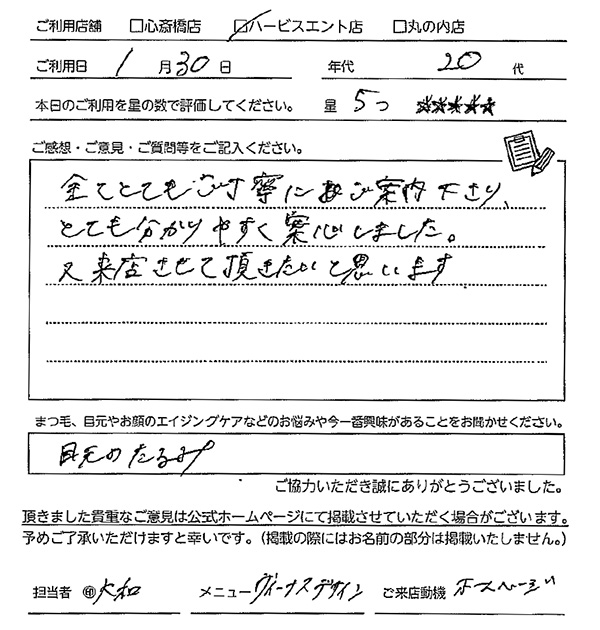 ご利用店舗 □心斎橋店 ☑ハービスエント店 □丸の内店
ご利用日 1月30日 年代 20代
本日のご利用を星の数で評価してください。 星 5つ ★★★★★
ご感想・ご意見・ご質問等をご記入ください。
全てとてもご丁寧にご案内下さり、
とても分かりやすく案心しました。
又来店させて頂きたいと思います
まつ毛、目元やお顔のエイジングケアなどのお悩みや今一番興味があることをお聞かせください。
目元のたるみ
ご協力いただき誠にありがとうございました。
頂きました貴重なご意見は公式ホームページにて掲載させていただく場合がございます。
予めご了承いただけますと幸いです。（掲載の際にはお名前の部分は掲載いたしません。）
担当者 ㊞ 大和 メニュー ヴィーナスデザイン ご来店動機 ホームページ